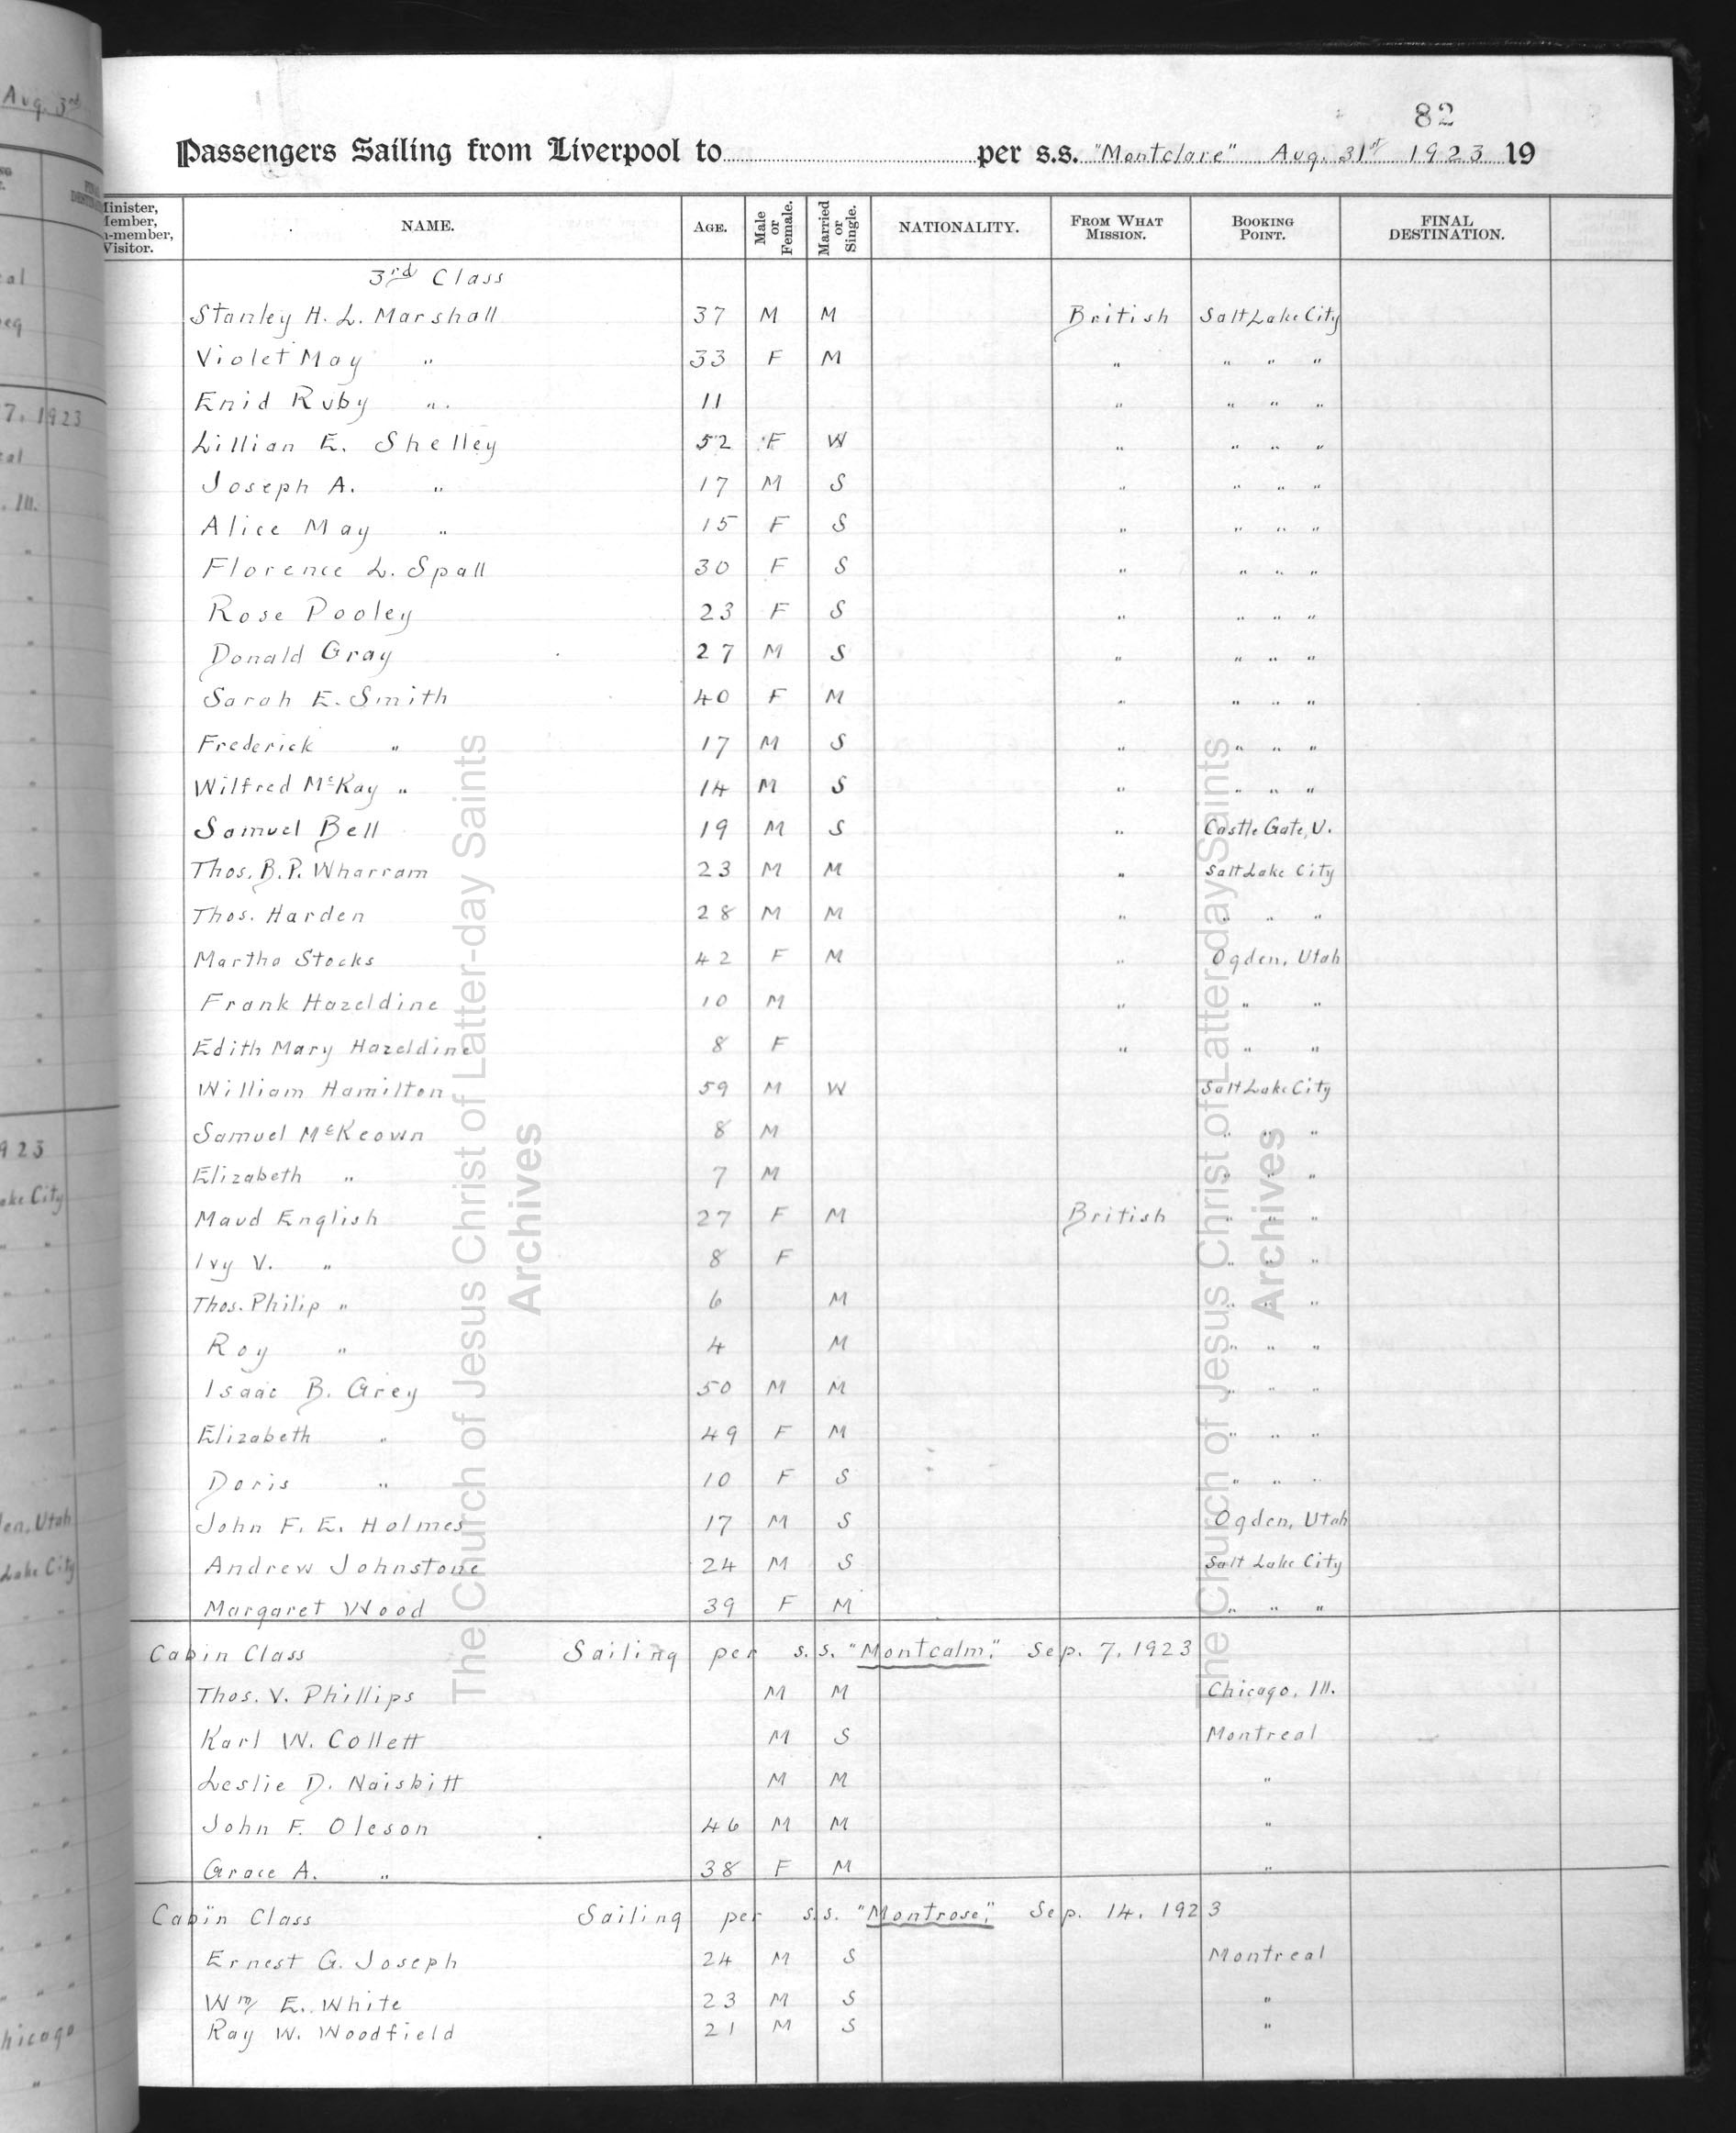 82
Passengers Sailing from Liverpool to per s.s. "Montclare" Aug. 31st 1923 19
Minister, Member, n-member, Visitor. NAME. AGE. Male or Female. Married or Single. NATIONALITY. FROM WHAT MISSION. BOOKING POINT. FINAL DESTINATION.
3rd Class
Stanley H. L. Marshall 37 M M British Salt Lake City
Violet May " 33 F M " " " "
Enid Ruby " 11 " " " "
Lillian E. Shelley 52 F W " " " "
Joseph A. " 17 M S " " " "
Alice May " 15 F S " " " "
Florence L. Spall 30 F S " " " "
Rose Pooley 23 F S " " " "
Donald Gray 27 M S " " " "
Sarah E. Smith 40 F M " " " "
Frederick " 17 M S " " " "
Wilfred McKay " 14 M S " " " "
Samuel Bell 19 M S " Castle Gate, U.
Thos. B. P. Wharram 23 M M " Salt Lake City
Thos. Harden 28 M M " " " "
Martha Stocks 42 F M " Ogden, Utah
Frank Hazeldine 10 M " " "
Edith Mary Hazeldine 8 F " " "
William Hamilton 59 M W Salt Lake City
Samuel McKeown 8 M " " "
Elizabeth " 7 M " " "
Maud English 27 F M British " " "
Ivy V. " 8 F " " "
Thos. Philip " 6 M " " "
Roy " 4 M " " "
Isaac B. Grey 50 M M " " "
Elizabeth " 49 F M " " "
Doris " 10 F S " " "
John F. E. Holmes 17 M S Ogden, Utah
Andrew Johnstone 24 M S Salt Lake City
Margaret Wood 39 F M " " "
Cabin Class Sailing per s.s. "Montcalm," Sep. 7, 1923
Thos. V. Phillips M M Chicago, Ill.
Karl W. Collett M S Montreal
Leslie D. Naisbitt M M "
John F. Oleson 46 M M "
Grace A. " 38 F M "
Cabin Class Sailing per s.s. "Montrose," Sep. 14, 1923
Ernest G. Joseph 24 M S Montreal
Wm E. White 23 M S "
Ray W. Woodfield 21 M S "
The Church of Jesus Christ of Latter-day Saints
Archives
The Church of Jesus Christ of Latter-day Saints
Archives
Aug. 3rd
7, 1923
. Ill.
923
ake City
en, Utah
Lake City
hicago